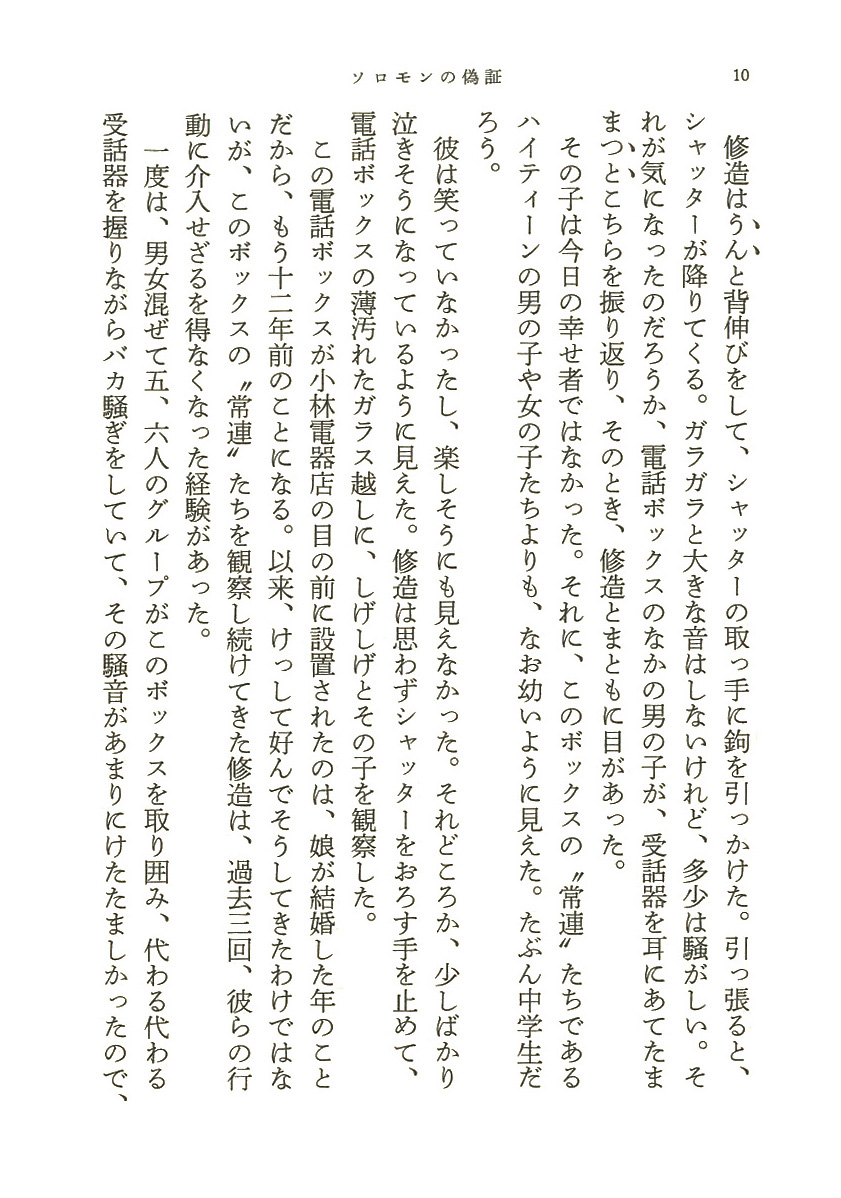 10
ソロモンの偽証
修造はうんと背伸びをして、シャッターの取っ手に鉤を引っかけた。引っ張ると、
シャッターが降りてくる。ガラガラと大きな音はしないけれど、多少は騒がしい。そ
れが気になったのだろうか、電話ボックスのなかの男の子が、受話器を耳にあてたま
まつとこちらを振り返り、そのとき、修造とまともに目があった。
その子は今日の幸せ者ではなかった。それに、このボックスの〝常連〟たちである
ハイティーンの男の子や女の子たちよりも、なお幼いように見えた。たぶん中学生だ
ろう。
彼は笑っていなかったし、楽しそうにも見えなかった。それどころか、少しばかり
泣きそうになっているように見えた。修造は思わずシャッターをおろす手を止めて、
電話ボックスの薄汚れたガラス越しに、しげしげとその子を観察した。
この電話ボックスが小林電器店の目の前に設置されたのは、娘が結婚した年のこと
だから、もう十二年前のことになる。以来、けっして好んでそうしてきたわけではな
いが、このボックスの〝常連〟たちを観察し続けてきた修造は、過去三回、彼らの行
動に介入せざるを得なくなった経験があった。
一度は、男女混ぜて五、六人のグループがこのボックスを取り囲み、代わる代わる
受話器を握りながらバカ騒ぎをしていて、その騒音があまりにけたたましかったので、